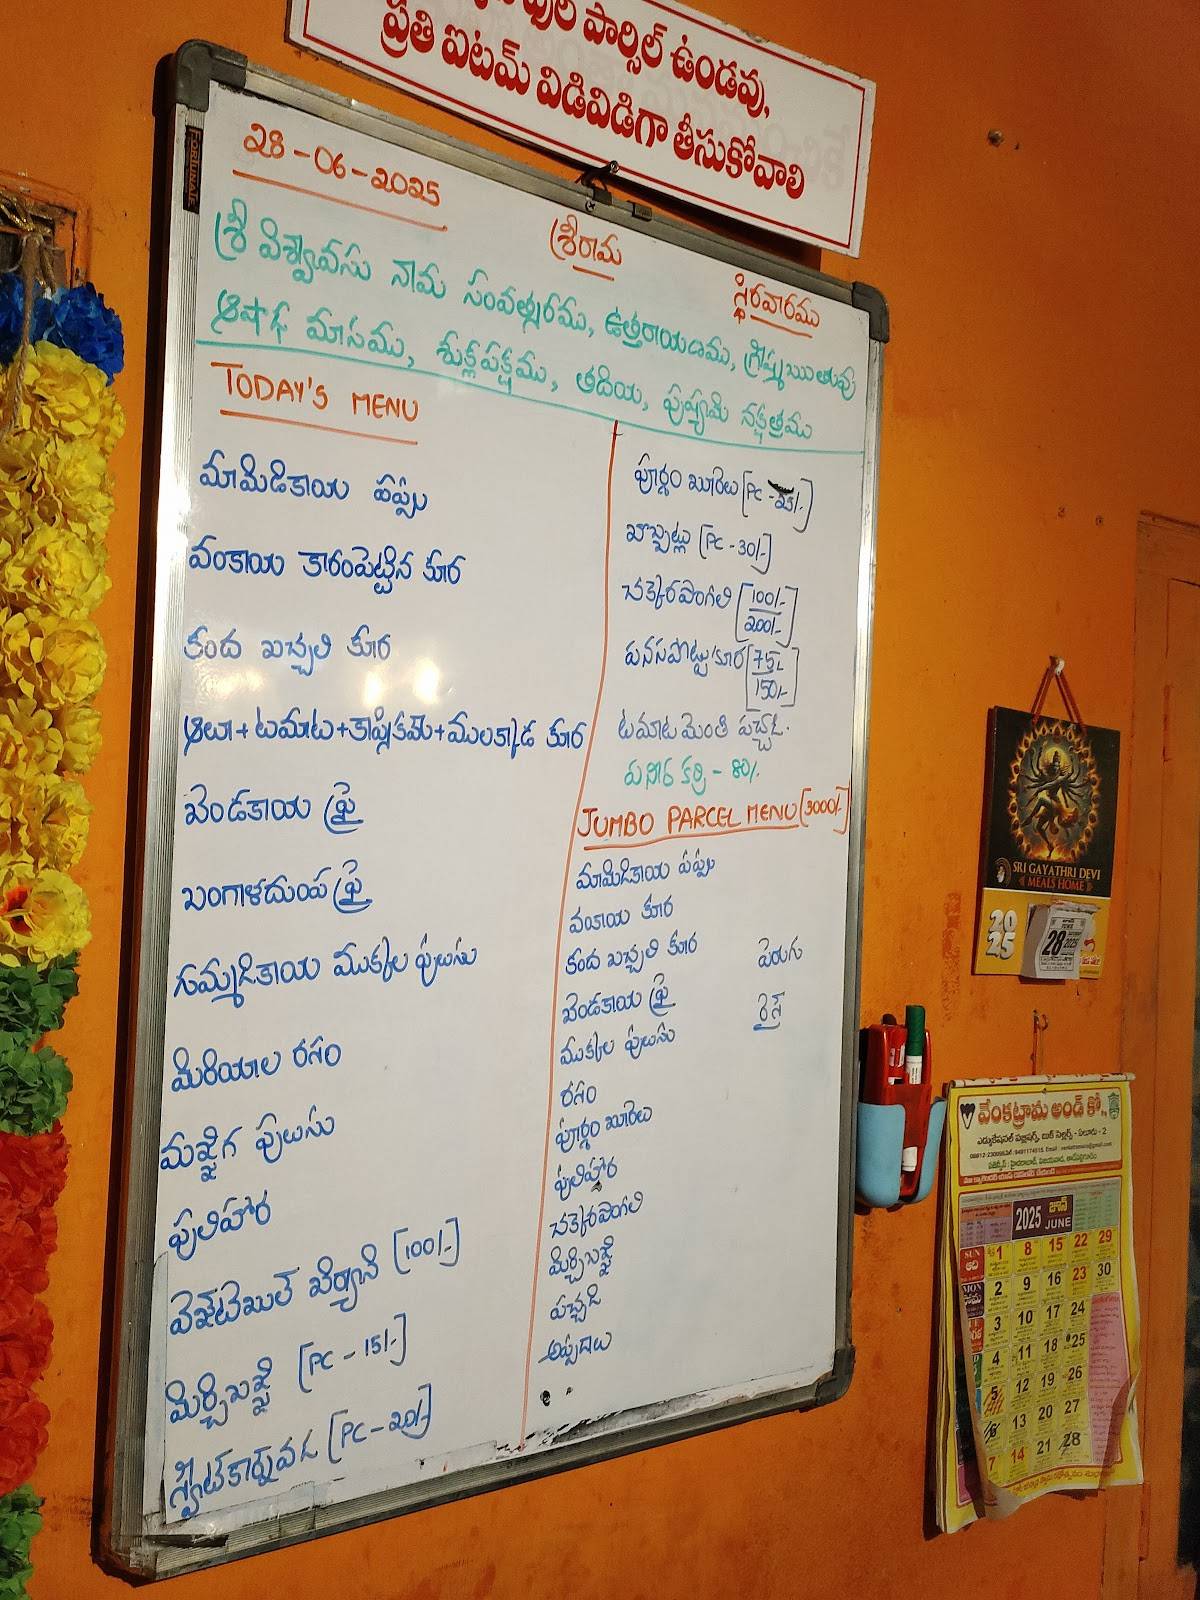 పుల్ పార్సిల్ ఉండవు,
ప్రతి ఐటమ్ విడివిడిగా తీసుకోవాలి
FORTUNATE
28-06-2025
శ్రీరామ
స్థిరవారము
శ్రీ విశ్వావసు నామ సంవత్సరము, ఉత్తరాయణము, గ్రీష్మఋతువు
ఆషాఢ మాసము, శుక్లపక్షము, తదియ, పుష్యమి నక్షత్రము
TODAY'S MENU
మామిడికాయ పప్పు
వంకాయ కారంపెట్టిన కూర
కంద బచ్చలి కూర
ఆలూ+టమాట+కాప్సికమ్+ములక్కాడ కూర
బెండకాయ ఫ్రై
బంగాళదుంప ఫ్రై
గుమ్మడికాయ ముక్కల పులుసు
మిరియాల రసం
మజ్జిగ పులుసు
పులిహోర
వెజిటెబుల్ బిర్యాని [100/-]
మిర్చిబజ్జి [PC - 15/-]
స్వీట్‌కార్న్‌వడ [PC - 20/-]
పూర్ణం బూరెలు [PC - 25/-]
బొబ్బట్లు [PC - 30/-]
చక్కెరపొంగలి [100/- 200/-]
పనసపొట్టు కూర [75/- 150/-]
టమాట మెంతి పచ్చడి.
పనీర్ కర్రి - 80/-
JUMBO PARCEL MENU [3000/-]
మామిడికాయ పప్పు
వంకాయ కూర
కంద బచ్చలి కూర
బెండకాయ ఫ్రై
ముక్కల పులుసు
రసం
పూర్ణం బూరెలు
పులిహోర
చక్కెరపొంగలి
మిర్చిబజ్జి
పచ్చడి
అప్పడాలు
పెరుగు
రైస్
SRI GAYATHRI DEVI
MEALS HOME
2025
28 2025
వేంకట్రామ అండ్ కో.,
ఎడ్యుకేషనల్ పబ్లిషర్స్, బుక్ సెల్లర్స్ - ఏలూరు - 2
2025 జూన్ JUNE
SUN ఆది 1 8 15 22 29
MON సోమ 2 9 16 23 30
3 10 17 24
4 11 18 25
5 12 19 26
6 13 20 27
7 14 21 28